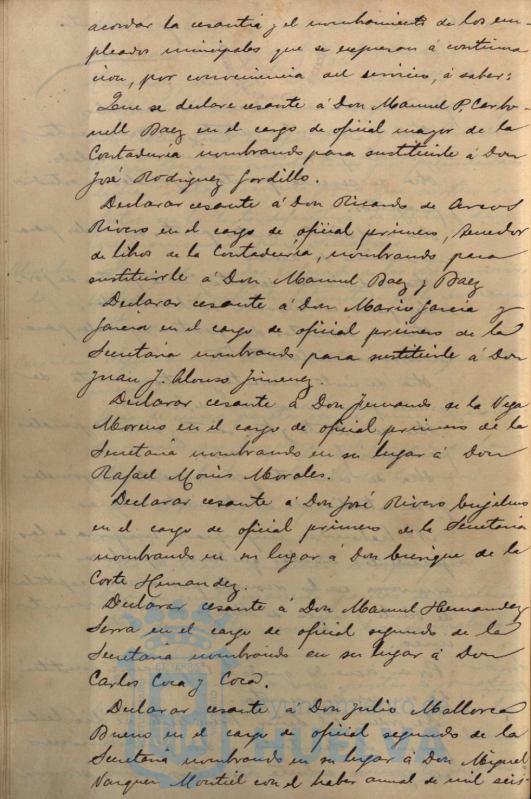 acordar la cesantia y el nombramiento de los em-
pleados municipales que se expresan á continua
cion, por conveniencia del servicio, á saber:
Que se declare cesante á Don Manuel P. Carbo-
nell Baez en el cargo de oficial mayor de la
Contaduría nombrando para sustituirle á Don
José Rodriguez Gordillo.
Declarar cesante á Don Ricardo de Arcos
Rivero en el cargo de oficial primero, tenedor
de libros de la Contaduría, nombrando para
sustituirle á Don Manuel Baez y Baez
Declarar cesante á Don Mario Garcia y
Garcia en el cargo de oficial primero de la
Secretaria nombrando para sustituirle á Don
Juan J. Alonso Jimenez.
Declarar cesante á Don Fernando de la Vega
Moreno en el cargo de oficial primero de la
Secretaria nombrando en su lugar á Don
Rafael Morales.
Declarar cesante á Don José Rivero
en el cargo de oficial primero de la Secretaria
nombrando en su lugar á Don Enrique de la
Corte Hernandez.
Declarar cesante á Don Manuel Hernandez
Serra en el cargo de oficial segundo de la
Secretaria nombrando en su lugar á Don
Carlos Coca y Coca.
Declarar cesante á Don Julio Mallorca
Bueno en el cargo de oficial segundo de la
Secretaria nombrando en su lugar á Don Miguel
Vazquez Montiel con el haber anual de mil seis
Ayuntamiento de
HUELVA